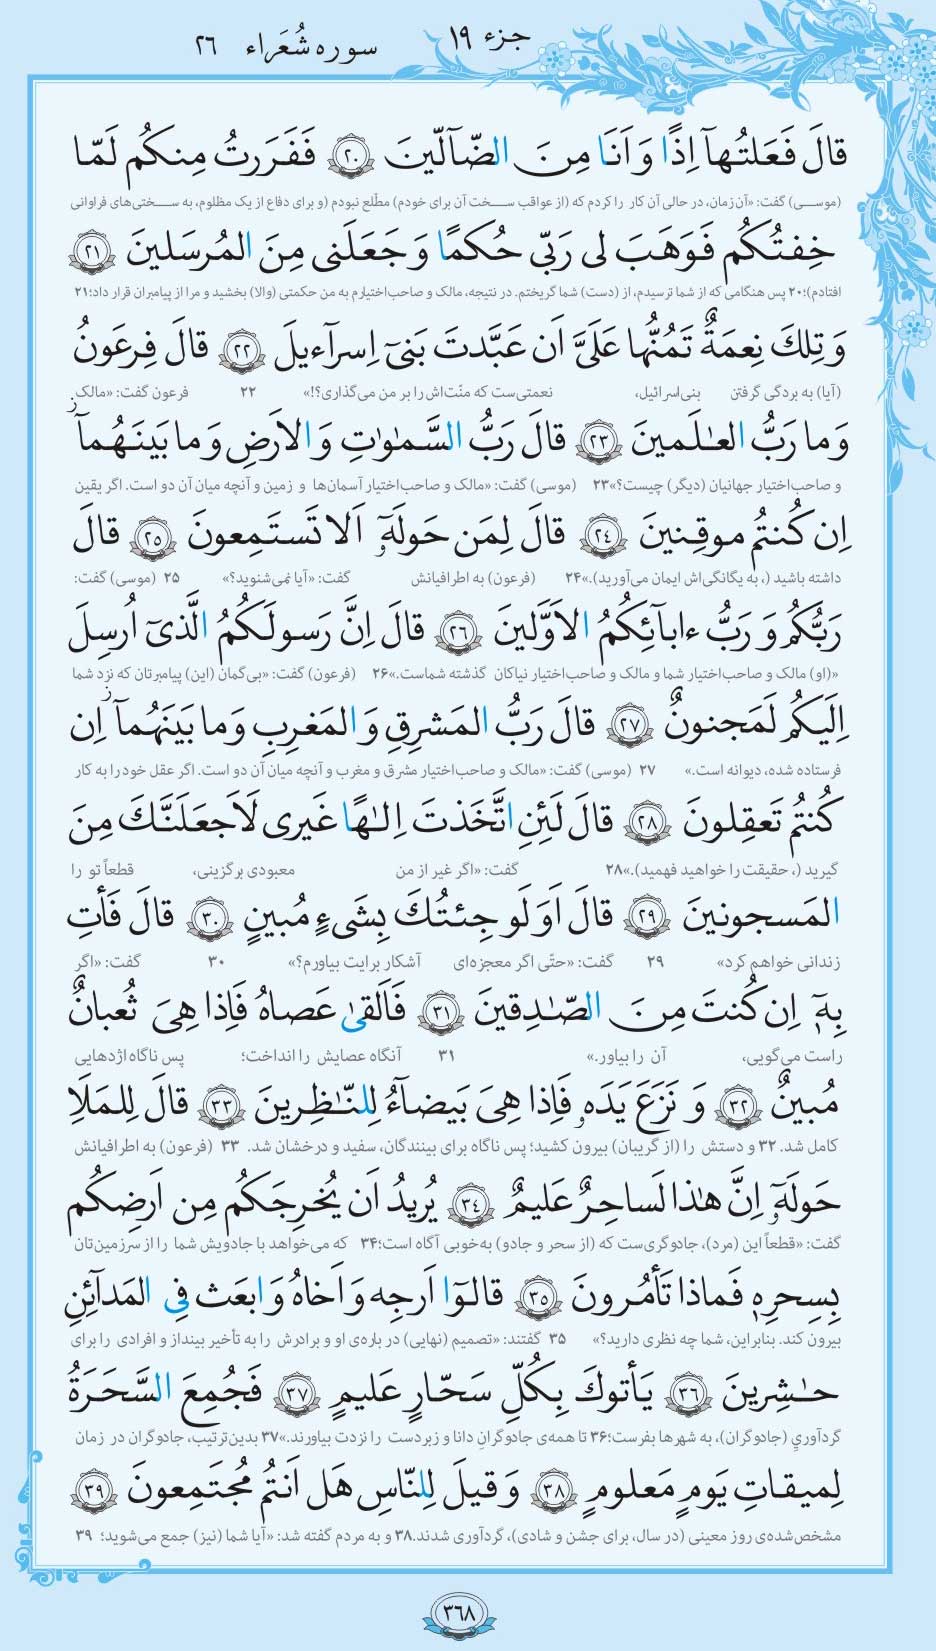 جزء ۱۹
سوره شُعَراء ۲۶
قالَ فَعَلتُهآ اِذًا وَ اَنَا مِنَ الضّآلّينَ ﴿۲۰﴾ فَفَرَرتُ مِنكُم لَمّا
(موسی) گفت: «آن زمان، در حالی آن کار را کردم که (از عواقب سخت آن برای خودم) مطّلع نبودم (و برای دفاع از یک مظلوم، به سختی‌های فراوانی
خِفتُكُم فَوَهَبَ لی رَبّی حُكمًا وَ جَعَلَنی مِنَ المُرسَلينَ ﴿۲۱﴾
افتادم)؛۲۰ پس هنگامی که از شما ترسیدم، از (دست) شما گریختم. در نتیجه، مالک و صاحب‌اختیارم به من حکمتی (والا) بخشید و مرا از پیامبران قرار داد؛۲۱
وَ تِلكَ نِعمَةٌ تَمُنُّها عَلَیَّ اَن عَبَّدتَ بَنیٓ اِسرآءيلَ ﴿۲۲﴾ قالَ فِرعَونُ
(آیا) به بردگی گرفتن بنی‌اسرائیل، نعمتی‌ست که منّت‌اش را بر من می‌گذاری؟!» ۲۲ فرعون گفت: «مالک
وَ ما رَبُّ العـٰلَمينَ ﴿۲۳﴾ قالَ رَبُّ السَّمـٰوٰتِ وَ الاَرضِ وَ ما بَينَهُمآ ز
و صاحب‌اختیار جهانیان (دیگر) چیست؟»۲۳ (موسی) گفت: «مالک و صاحب‌اختیار آسمان‌ها و زمین و آنچه میان آن دو است. اگر یقین
اِن كُنتُم موقِنينَ ﴿۲۴﴾ قالَ لِمَن حَولَهٗٓ اَلا تَستَمِعونَ ﴿۲۵﴾ قالَ
داشته باشید (، به یگانگی‌اش ایمان می‌آورید).»۲۴ (فرعون) به اطرافیانش گفت: «آیا نمی‌شنوید؟» ۲۵ (موسی) گفت:
رَبُّكُم وَ رَبُّ ءابآئِكُمُ الاَوَّلينَ ﴿۲۶﴾ قالَ اِنَّ رَسولَكُمُ الَّذیٓ اُرسِلَ
«(او) مالک و صاحب‌اختیار شما و مالک و صاحب‌اختیار نیاکان گذشته شماست.»۲۶ (فرعون) گفت: «بی‌گمان (این) پیامبرتان که نزد شما
اِلَيكُم لَمَجنونٌ ﴿۲۷﴾ قالَ رَبُّ المَشرِقِ وَ المَغرِبِ وَ ما بَينَهُمآ ز اِن
فرستاده شده، دیوانه است.» ۲۷ (موسی) گفت: «مالک و صاحب‌اختیار مشرق و مغرب و آنچه میان آن دو است. اگر عقل خود را به کار
كُنتُم تَعقِلونَ ﴿۲۸﴾ قالَ لَئِنِ اتَّخَذتَ اِلـٰهًا غَيری لَاَجعَلَنَّكَ مِنَ
گیرید (، حقیقت را خواهید فهمید).»۲۸ گفت: «اگر غیر از من معبودی برگزینی، قطعاً تو را
المَسجونينَ ﴿۲۹﴾ قالَ اَوَ لَو جِئتُكَ بِشَیءٍ مُبينٍ ﴿۳۰﴾ قالَ فَأتِ
زندانی خواهم کرد» ۲۹ گفت: «حتّی اگر معجزه‌ای آشکار برایت بیاورم؟» ۳۰ گفت: «اگر
بِهٖٓ اِن كُنتَ مِنَ الصّـٰدِقينَ ﴿۳۱﴾ فَاَلقیٰ عَصاهُ فَاِذا هِیَ ثُعبانٌ
راست می‌گویی، آن را بیاور.» ۳۱ آنگاه عصایش را انداخت؛ پس ناگاه اژدهایی
مُبينٌ ﴿۳۲﴾ وَ نَزَعَ يَدَهٗ فَاِذا هِیَ بَيضآءُ لِلنّـٰظِرينَ ﴿۳۳﴾ قالَ لِلمَلَاِ
کامل شد. ۳۲ و دستش را (از گریبان) بیرون کشید؛ پس ناگاه برای بینندگان، سفید و درخشان شد. ۳۳ (فرعون) به اطرافیانش
حَولَهٗٓ اِنَّ هـٰذا لَساحِرٌ عَليمٌ ﴿۳۴﴾ يُريدُ اَن يُخرِجَكُم مِن اَرضِكُم
گفت: «قطعاً این (مرد)، جادوگری‌ست که (از سحر و جادو) به‌خوبی آگاه است؛۳۴ که می‌خواهد با جادویش شما را از سرزمین‌تان
بِسِحرِهٖ فَماذا تَأمُرونَ ﴿۳۵﴾ قالوٓا اَرجِه وَ اَخاهُ وَ ابعَث فِی المَدآئِنِ
بیرون کند. بنابراین، شما چه نظری دارید؟» ۳۵ گفتند: «تصمیم (نهایی) در باره‌ی او و برادرش را به تأخیر بینداز و افرادی را برای
حـٰشِرينَ ﴿۳۶﴾ يَأتوكَ بِكُلِّ سَحّارٍ عَليمٍ ﴿۳۷﴾ فَجُمِعَ السَّحَرَةُ
گردآوریِ (جادوگران)، به شهرها بفرست؛۳۶ تا همه‌ی جادوگرانِ دانا و زبردست را نزدت بیاورند.»۳۷ بدین‌ترتیب، جادوگران در زمان
لِميقاتِ يَومٍ مَعلومٍ ﴿۳۸﴾ وَ قيلَ لِلنّاسِ هَل اَنتُم مُجتَمِعونَ ﴿۳۹﴾
مشخص‌شده‌ی روز معینی (در سال، برای جشن و شادی)، گردآوری شدند.۳۸ و به مردم گفته شد: «آیا شما (نیز) جمع می‌شوید؛ ۳۹
۳۶۸